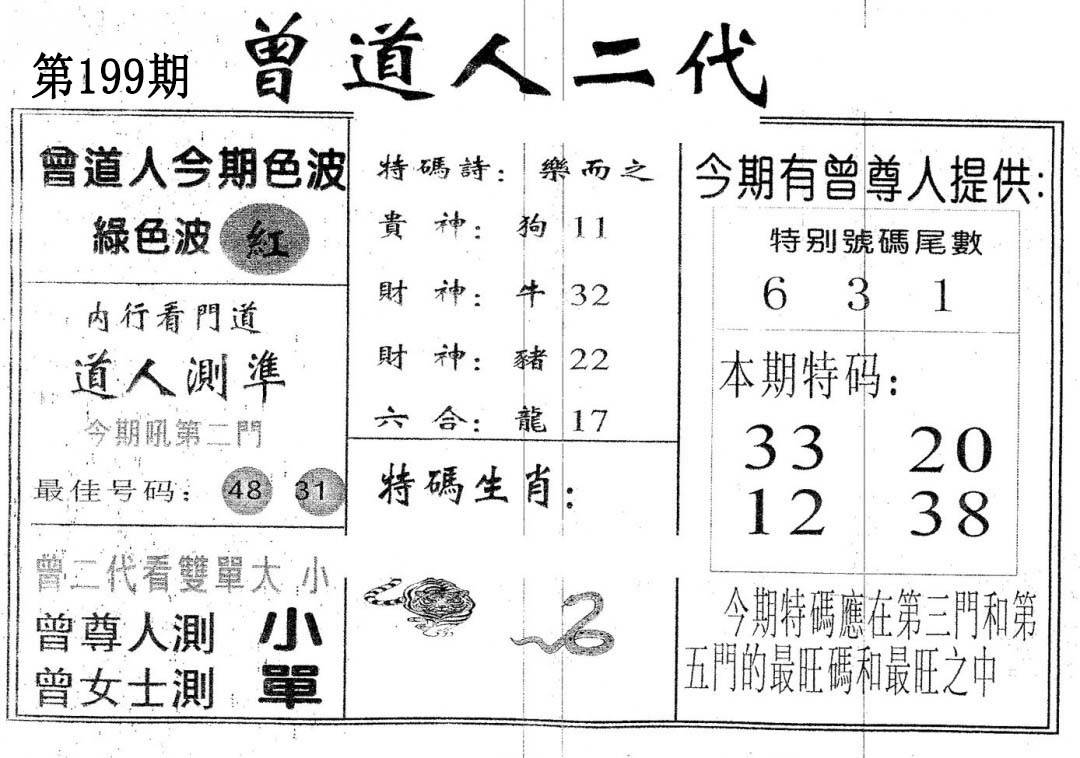 曾道人二代
第199期
曾道人今期色波
綠色波 紅
内行看門道
道人測準
今期吼第二門
最佳号码： 48 31
曾二代看雙單大 小
曾尊人測 小
曾女士測 單
特碼詩：樂而之
貴神：狗 11
財神：牛 32
財神：豬 22
六合：龍 17
特碼生肖：
今期有曾尊人提供：
特别號碼尾數
6 3 1
本期特码：
33 20
12 38
今期特碼應在第三門和第
五門的最旺碼和最旺之中